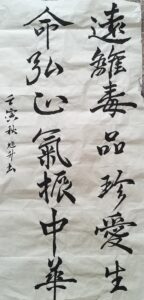 遠離毒品珍愛生
命弘正氣振中華
壬寅秋旭升書